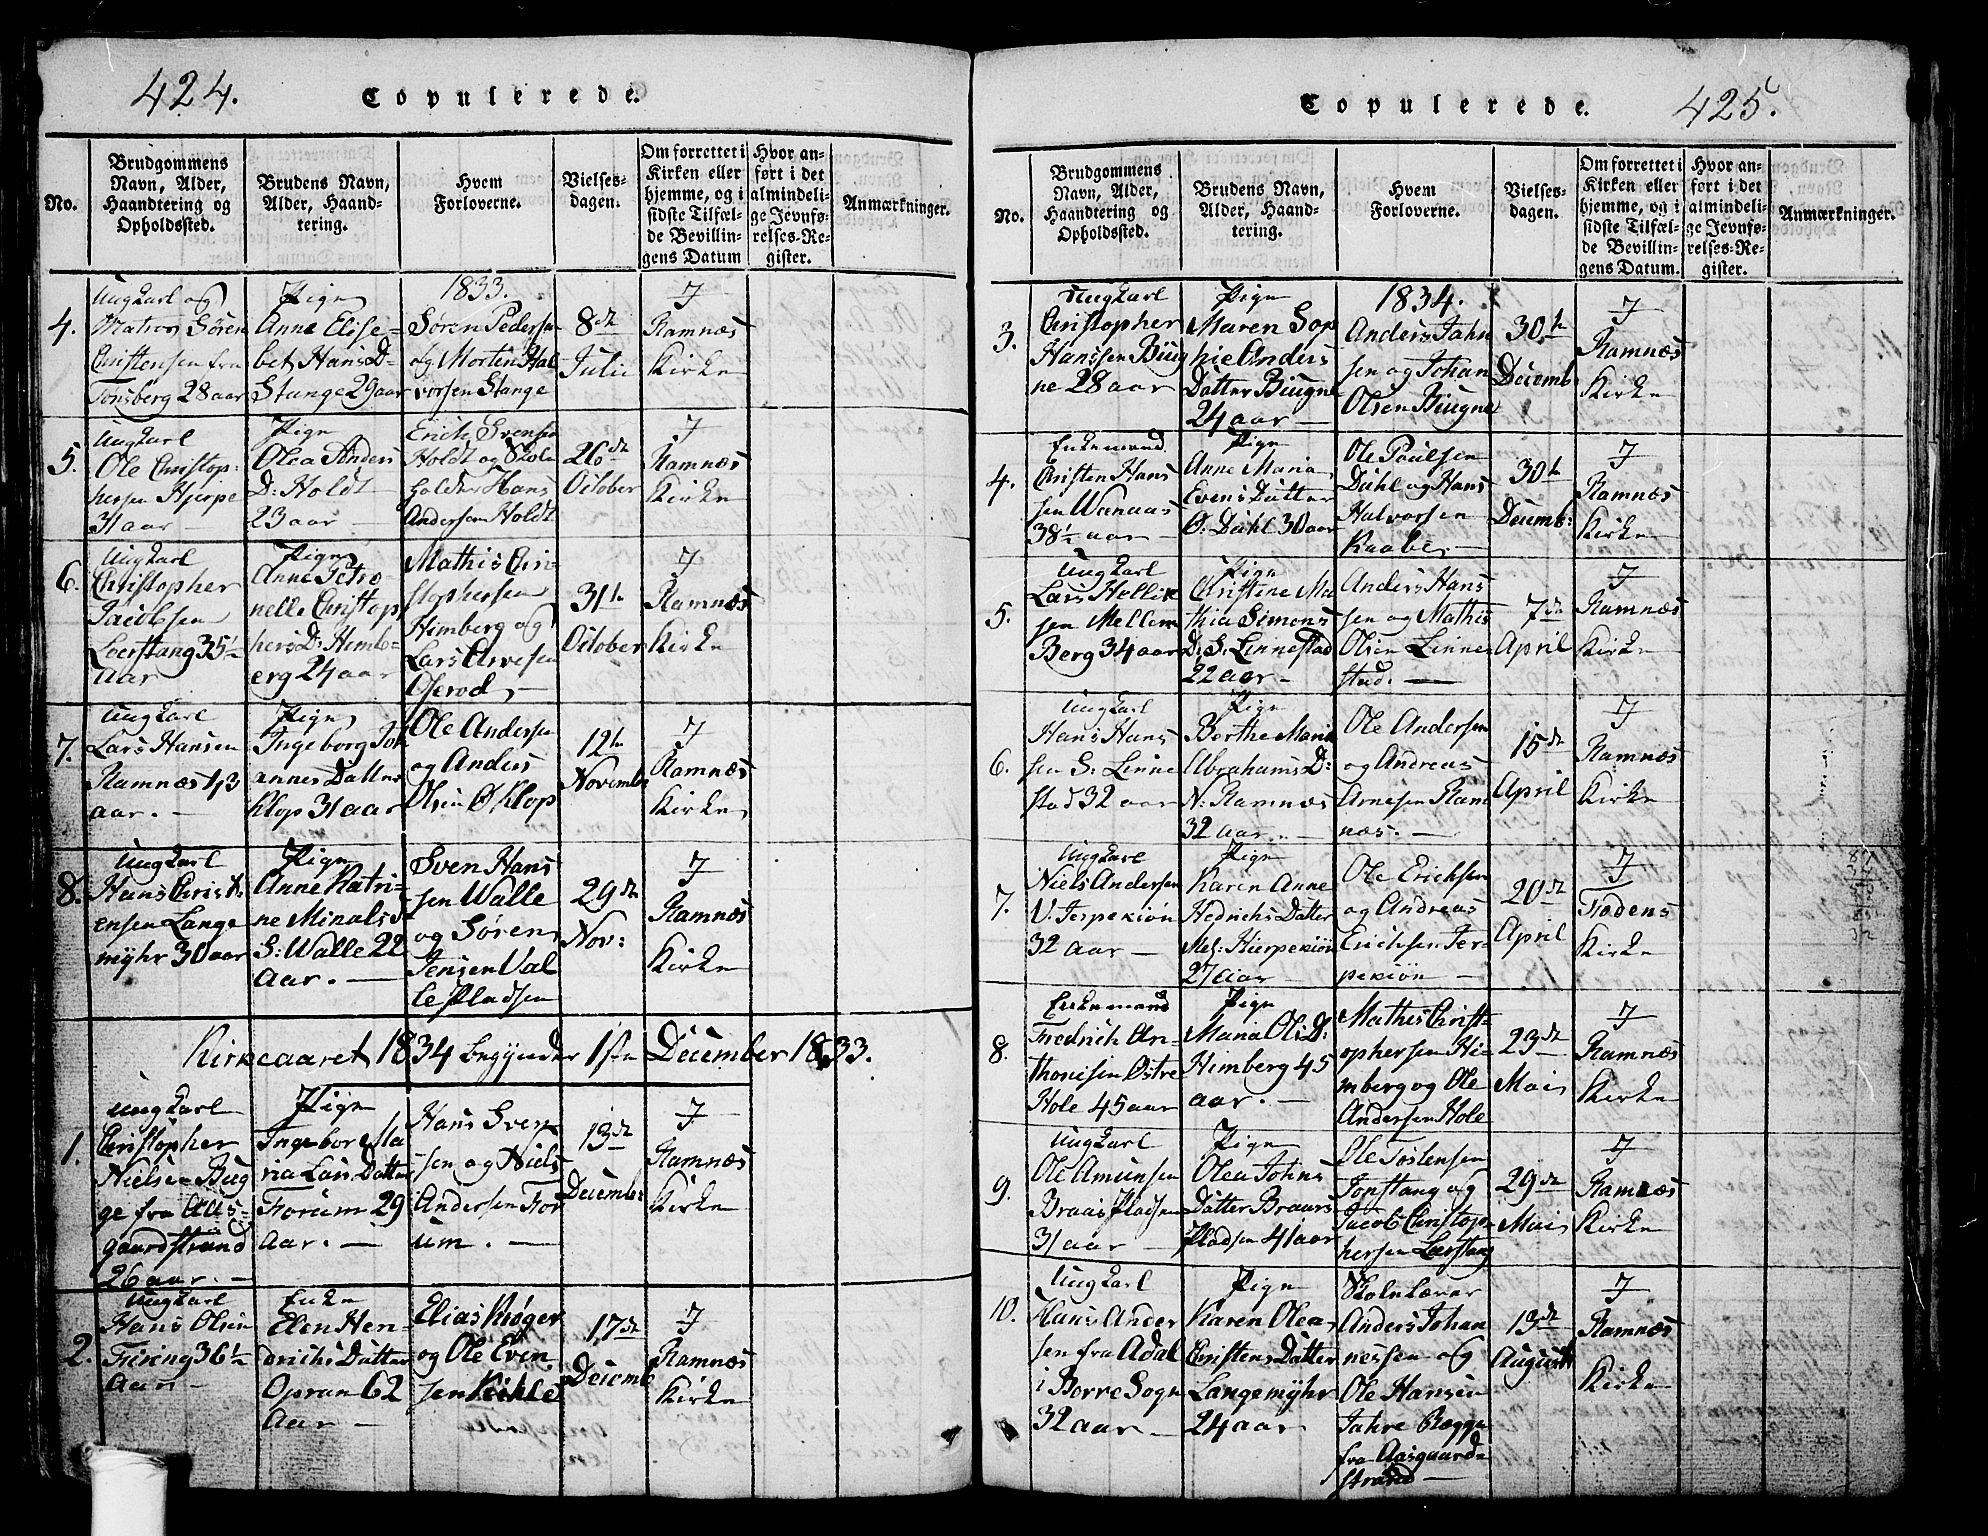 424.
Copulerede.
No.
Brudgommens
Navn, Alder,
Haandtering og
Opholdssted.
Brudens Navn,
Alder, Haand-
tering.
Hvem
Forloverne.
Vielses-
dagen.
Om forrettet i
Kirken eller
hjemme, og i
sidste Tilfæl-
de Bevillin-
gens Datum
Hvor an-
ført i det
almindeli-
ge Jevnfø-
relses-Re-
gister.
Anmærkninger.
1833.
4.
Ungkarl og
Matros Søren
Christensen fra
Tønsberg 28 aar
Pige
Anne Elise-
bet Hans D:
Stange 29 aar
Søren Pedersen
og Morten Hal
vorsen Stange
8de
Juli
I
Ramnæs
Kirke
5.
Ungkarl
Ole Christop-
hersen Hjerpe
31 aar
Pige
Olea Anders
D: Holdt
23 aar
Erich Svensen
Holdt og Skole
holder Hans
Andersen Holdt
26de
October
I
Ramnæs
Kirke
6.
Ungkarl
Christopher
Lerstang 35½
Aar
Pige
Anne Petro
nelle Christop
hers D: Himb-
erg 24 aar
Mathis Chri-
stophersen
Himberg og
Lars Arvesen
Oserod
31te
October
I
Ramnæs
Kirke
7.
Ungkarl
Lars Hansen
Ramnæs 43
aar.
Pige
Ingeborg Joh
annes Datter
Klop 31 aar
Ole Andersen
og Anders
Olsen Ø. Klop
12te
Novembr
I
Ramnæs
Kirke
8.
Ungkarl
Hans Christ
ensen Lange
myhr 30 aar
Pige
Anne Katri-
ne Minals
S: Walle 22
Aar.
Sven Hans
sen Walle
og Søren
Jensen Val
le Pladsen
29de
Nov:
I
Ramnæs
Kirke
Kirkeaaret 1834 begynder 1ste December 1833.
1.
Ungkarl
Christopher
Nielsen Bug
ge fra Aas-
gaardstrand
26 aar.
Pige
Ingebor Ma
ria Lars Datter
Forum 29
Aar.
Hans Sven
sen og Niels
Andersen For
um.
13de
Decembr:
I
Ramnæs
Kirke
2.
Ungkarl
Hans Olsen
Frising 36½
Aar
Enke
Elen Hen-
drichs Datter
Opran 62
Aar
Elias Krøger
og Ole Even
sen Kihle
17de
Decemb
I
Ramnæs
Kirke
Copulerede.
425.
No.
Brudgommens
Navn, Alder,
Haandtering og
Opholdssted.
Brudens Navn,
Alder, Haand-
tering.
Hvem
Forloverne.
Vielses-
dagen.
Om forrettet i
Kirken eller
hjemme, og i
sidste Tilfæl-
de Bevillin-
gens Datum.
Hvor an-
ført i det
almindeli-
ge Jevnfø-
relses-Re-
gister.
Anmærkninger.
1834.
3.
Ungkarl
Christopher
Hanssen Biug
ne 28 aar
Pige
Maren Sop
hie Anders
Datter Biugne
24 aar
Anders Jahn
sen og Johan
Olsen Biugne
30te
Decemb
I
Ramnæs
Kirke
4.
Enkemand
Christen Hans
sen Wanaas
38½ aar
Pige
Anne Maria
Evens Datter
Ø. Dahl 30 aar
Ole Paulsen
Dahl og Hans
Halvorsen
Raabe
30te
Decemb:
I
Ramnæs
Kirke
5.
Ungkarl
Lars Hollie
sen Mellem
Berg 34 aar
Pige
Christine Ma
thia Simons
D: S. Linnestad
22 aar
Anders Hans
sen og Mathis
Olsen Linne
stad.
7de
April
I
Ramnæs
Kirke
6.
Ungkarl
Hans Hans
sen S: Linne
stad 32 aar
Pige
Borthe Maria
Abrahams D:
N: Ramnæs
32 aar.
Ole Andersen
og Andreas
Arnesen Ram
næs.
15de
April
I
Ramnæs
Kirke
7.
Ungkarl
Niels Andersen
V. Jerpekiøn
32 aar
Pige
Karen Anne
Hedrichs Datter
Mel: Hierpekiøn
27 aar
Ole Erichsen
og Andreas
Erichsen Jer-
pekiøn
20de
April
I
Fodens
Kirke
8.
Enkemand
Fredrich An-
thonisen Østre
Hole 45 aar
Pige
Maria Ols D:
Himberg 45
aar.
Mathis Christ-
ophersen Hi-
mberg og Ole
Andersen Hole
23de
Mai
I
Ramnæs
Kirke
9.
Ungkarl
Ole Amunsen
Braas Pladsen
31 aar
Pige
Olea Johns
Datter Braars
Pladsen 41 aar
Ole Tostensen
Topstang og
Jacob Christop-
hersen Lerstang
29de
Mai
I
Ramnæs
Kirke
10.
Ungkarl
Hans Ander
sen fra Adal
i Borre Sogn
32 aar
Pige
Karen Olea
Christens Datter
Langemyhr
24 aar
Skolelærer
Anders Johan
nessen og
Ole Hansen
Jahre Bogge
fra Aasgaard-
strand
13de
August
I
Ramnæs
Kirke